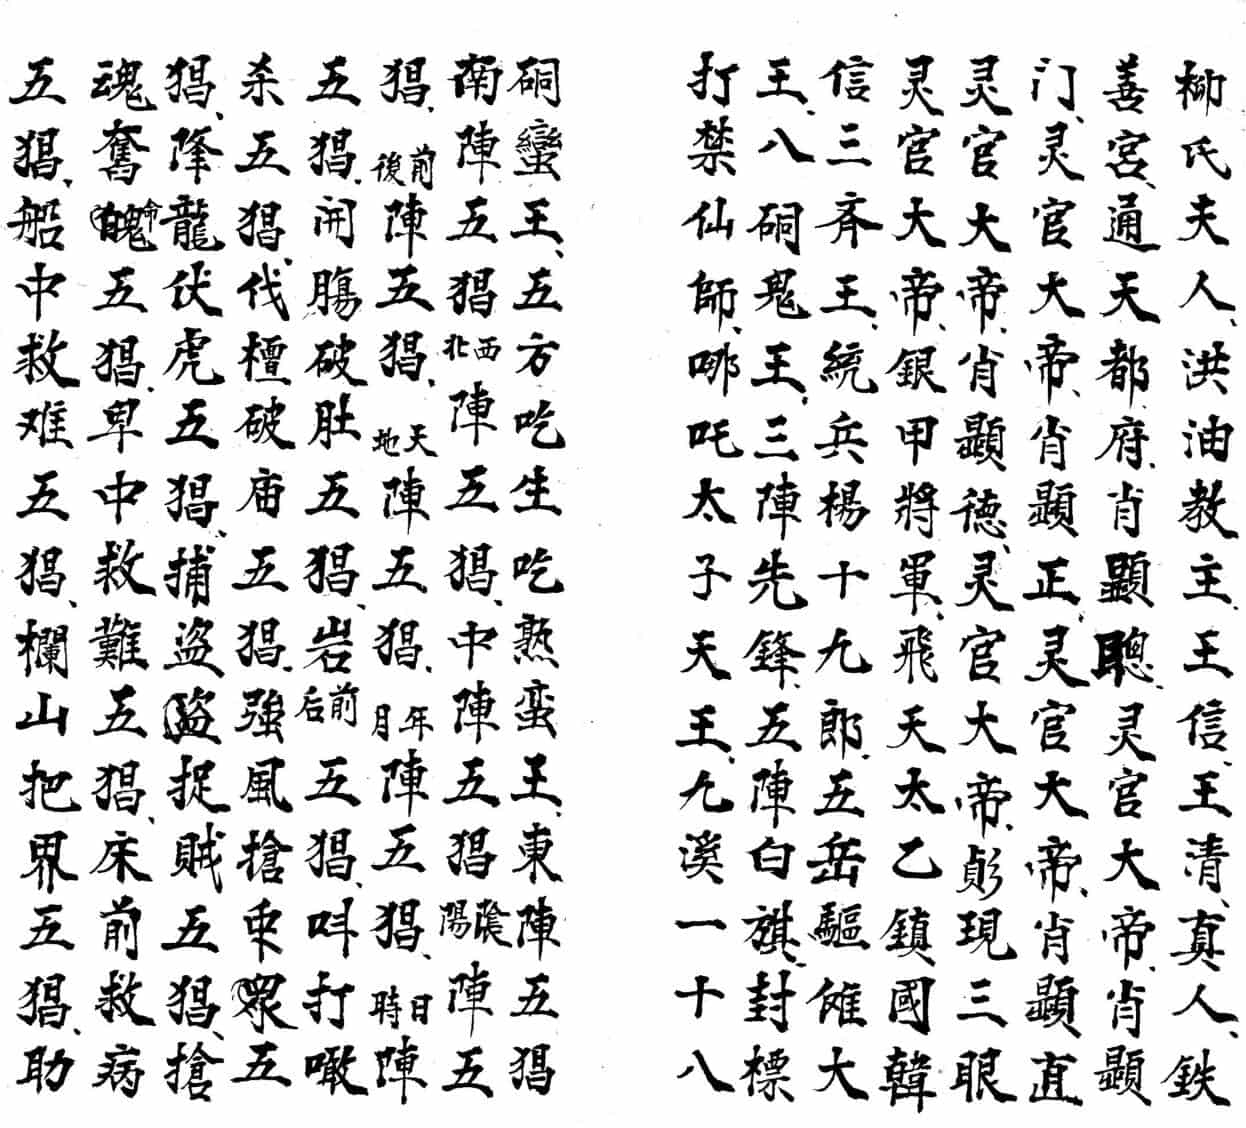 柳氏夫人、洪油教主、王信、王清、真人、鉄
善宮、通天都府、肖顯聰、灵官大帝、肖顯
门、灵官大帝、肖顯正、灵官大帝、肖顯直
灵官大帝、肖顯德、灵官大帝、彭現三眼
灵官大帝、銀甲將軍、飛天太乙鎮國韓
信三斉王、統兵楊十九郎、五岳驅傩大
王、八硐鬼王、三陣先鋒、五陣白旗、封標
打禁仙師、哪吒太子天王、九溪一十八
硐蠻王、五方吃生吃熟蛮王、東陣五猖
南陣五猖西北陣五猖、中陣五猖陰陽陣五
猖、前後陣五猖、天地陣五猖、年月陣五猖、日時陣
五猖、開腸破肚五猖、岩前后五猖、呌打噉
杀五猖、伐檀破庙五猖、強風搶眾五
猖、降龍伏虎五猖、捕盗捉賊五猖、搶
魂奮命五猖、卑中救難五猖、床前救病
五猖、船中救难五猖、欄山把界五猖、助